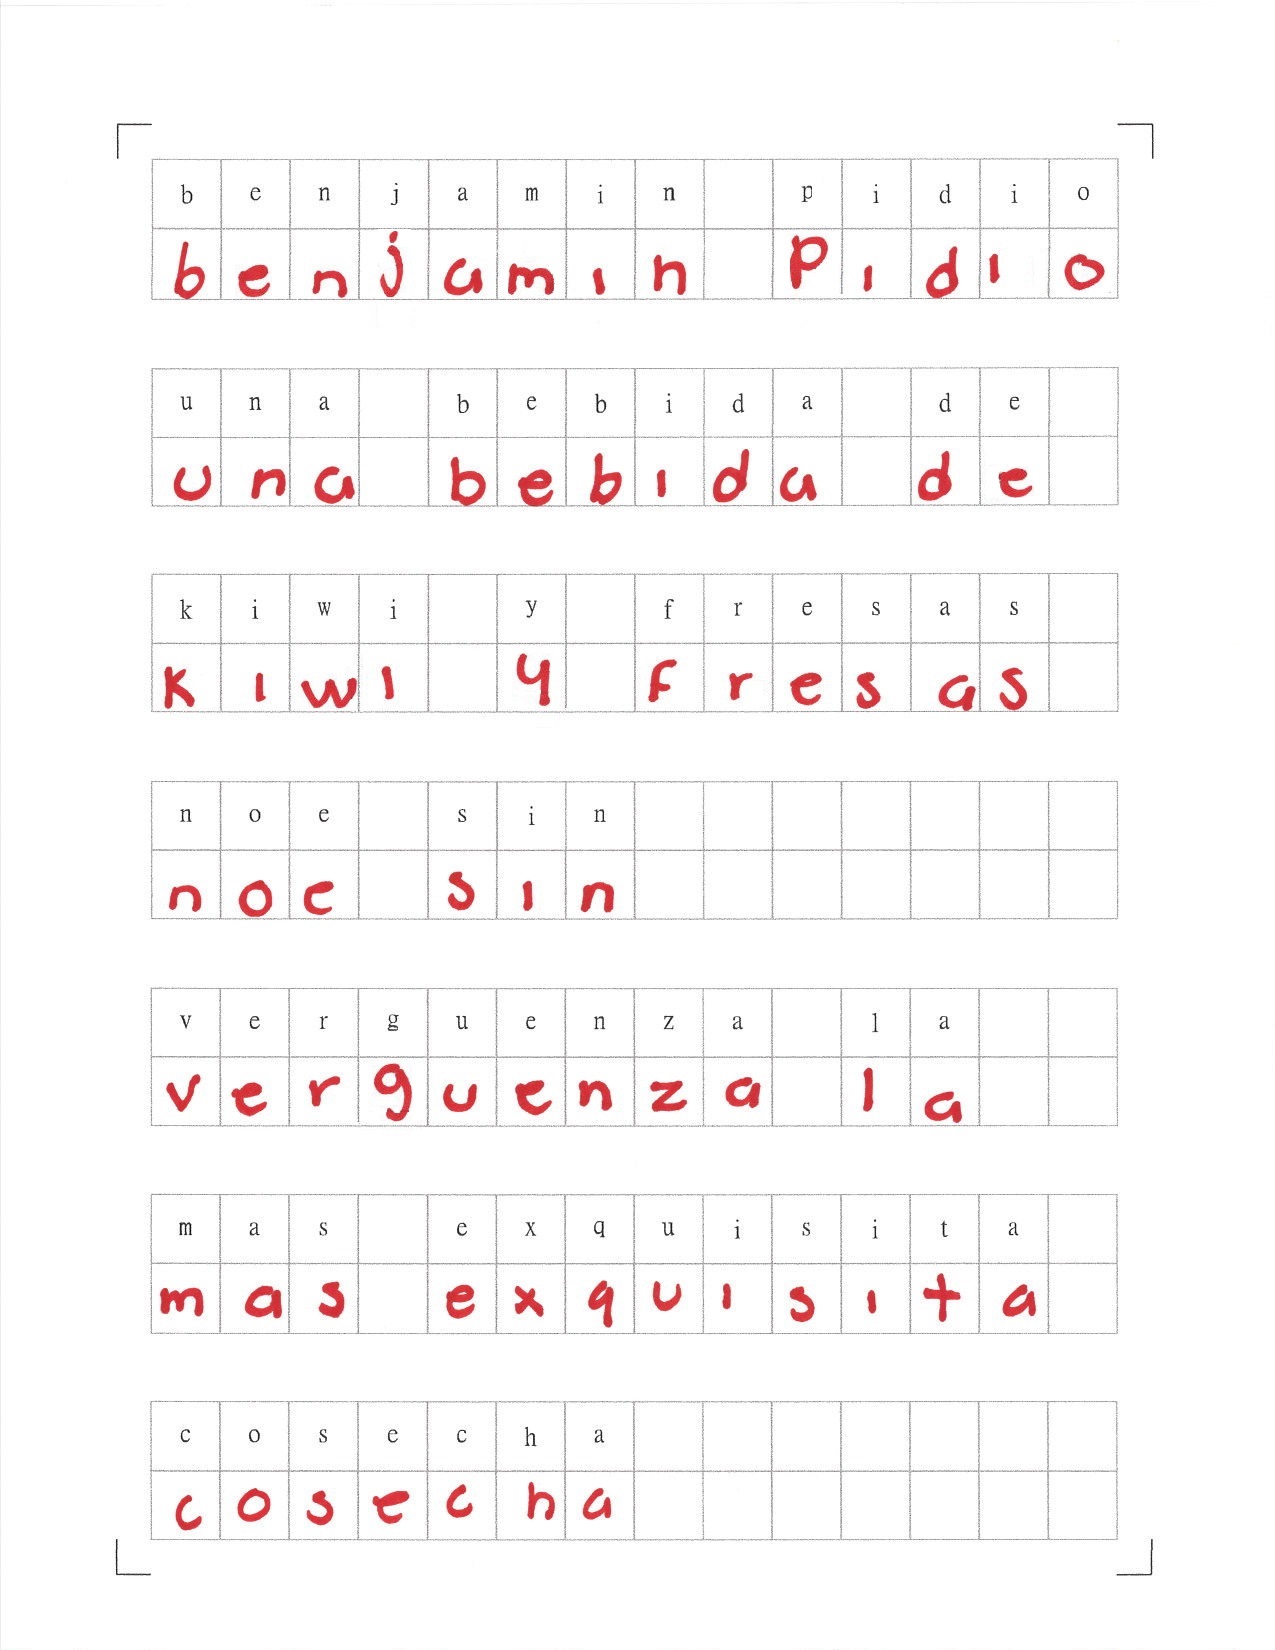 b e n j a m i n p i d i o
b e n j a m i n P i d i o
u n a b e b i d a d e
u n a b e b i d a d e
k i w i y f r e s a s
k i w i y f r e s a s
n o e s i n
n o e s i n
v e r g u e n z a l a
v e r g u e n z a l a
m a s e x q u i s i t a
m a s e x q u i s i t a
c o s e c h a
c o s e c h a